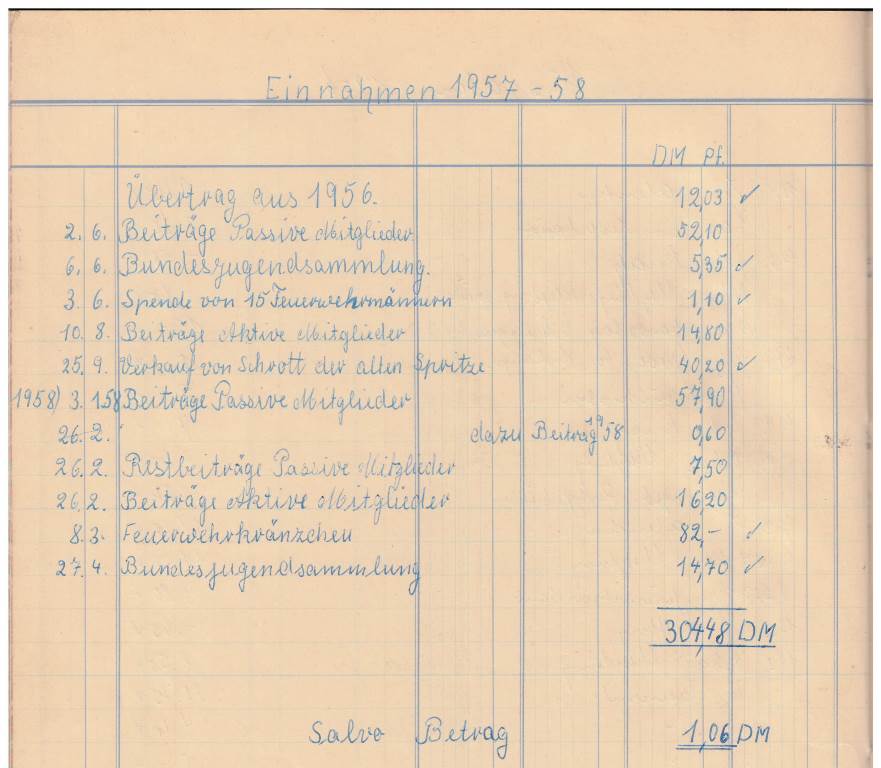 Einnahmen 1957 - 58
DM Pf.
Übertrag aus 1956. 12,03 ✓
2. 6. Beiträge Passive Mitglieder 52,10
6. 6. Bundesjugendsammlung. 5,35 ✓
3. 6. Spende von 15 Feuerwehrmännern 1,10 ✓
10. 8. Beiträge Aktive Mitglieder 14,80
25. 9. Verkauf von Schrott der alten Spritze 40,20 ✓
1958) 3. 1.58 Beiträge Passive Mitglieder 57,90
26. 2. dazu Beitrag 1958 0,60
26. 2. Restbeiträge Passive Mitglieder 7,50
26. 2. Beiträge Aktive Mitglieder 16,20
8. 3. Feuerwehrkränzchen 82,- ✓
27. 4. Bundesjugendsammlung 14,70 ✓
304,48 DM
Salvo Betrag 1,06 DM